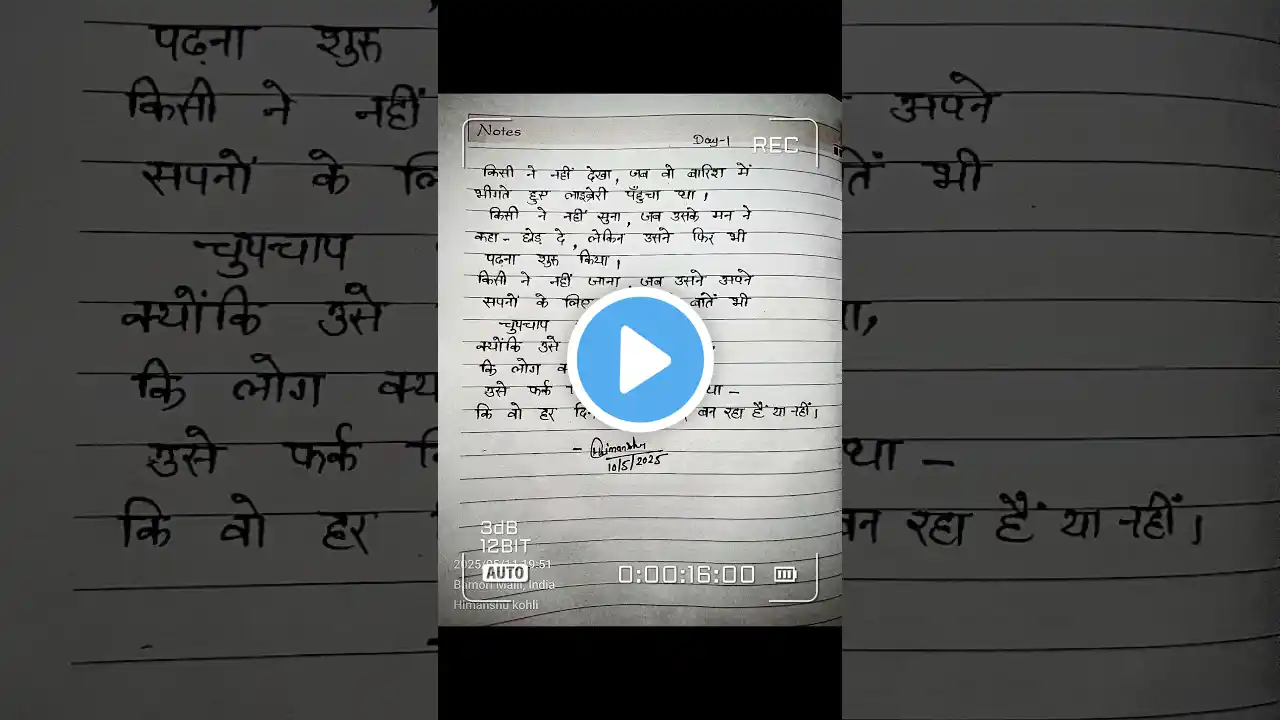 Notes
Day-1
REC
किसी ने नहीं देखा, जब वो बारिश में
भीगते हुए लाइब्रेरी पहुँचा था।
किसी ने नहीं सुना, जब उसके मन ने
कहा - छोड़ दे, लेकिन उसने फिर भी
पढ़ना शुरू किया।
किसी ने नहीं जाना, जब उसने अपने
सपनों के लिए बातें भी
चुपचाप
क्योंकि उसे ा,
कि लोग
उसे फर्क था –
कि वो हर बन रहा हैं या नहीं।
- Himanshu
10/5/2025
3dB
12BIT
AUTO
19:51
Bamori Malli, India
Himanshu kohli
0:00:16:00